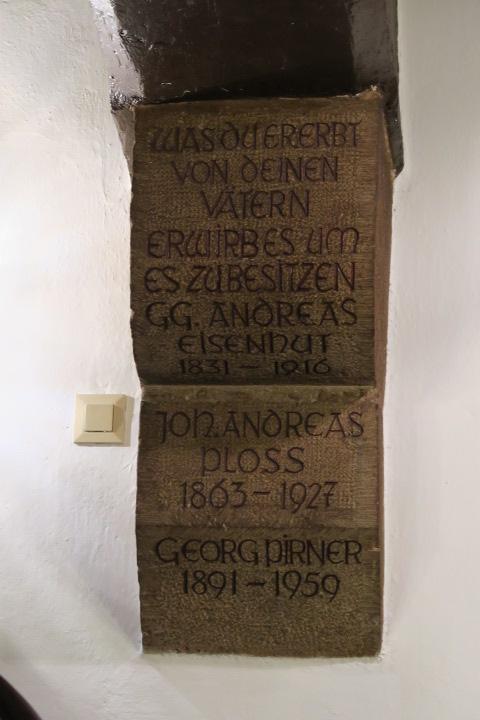 WAS DU ERERBT
VON DEINEN
VÄTERN
ERWIRB ES UM
ES ZU BESITZEN
GG. ANDREAS
EISENHUT
1831 – 1916
JOH. ANDREAS
PLOSS
1863 – 1927
GEORG PIRNER
1891 – 1959